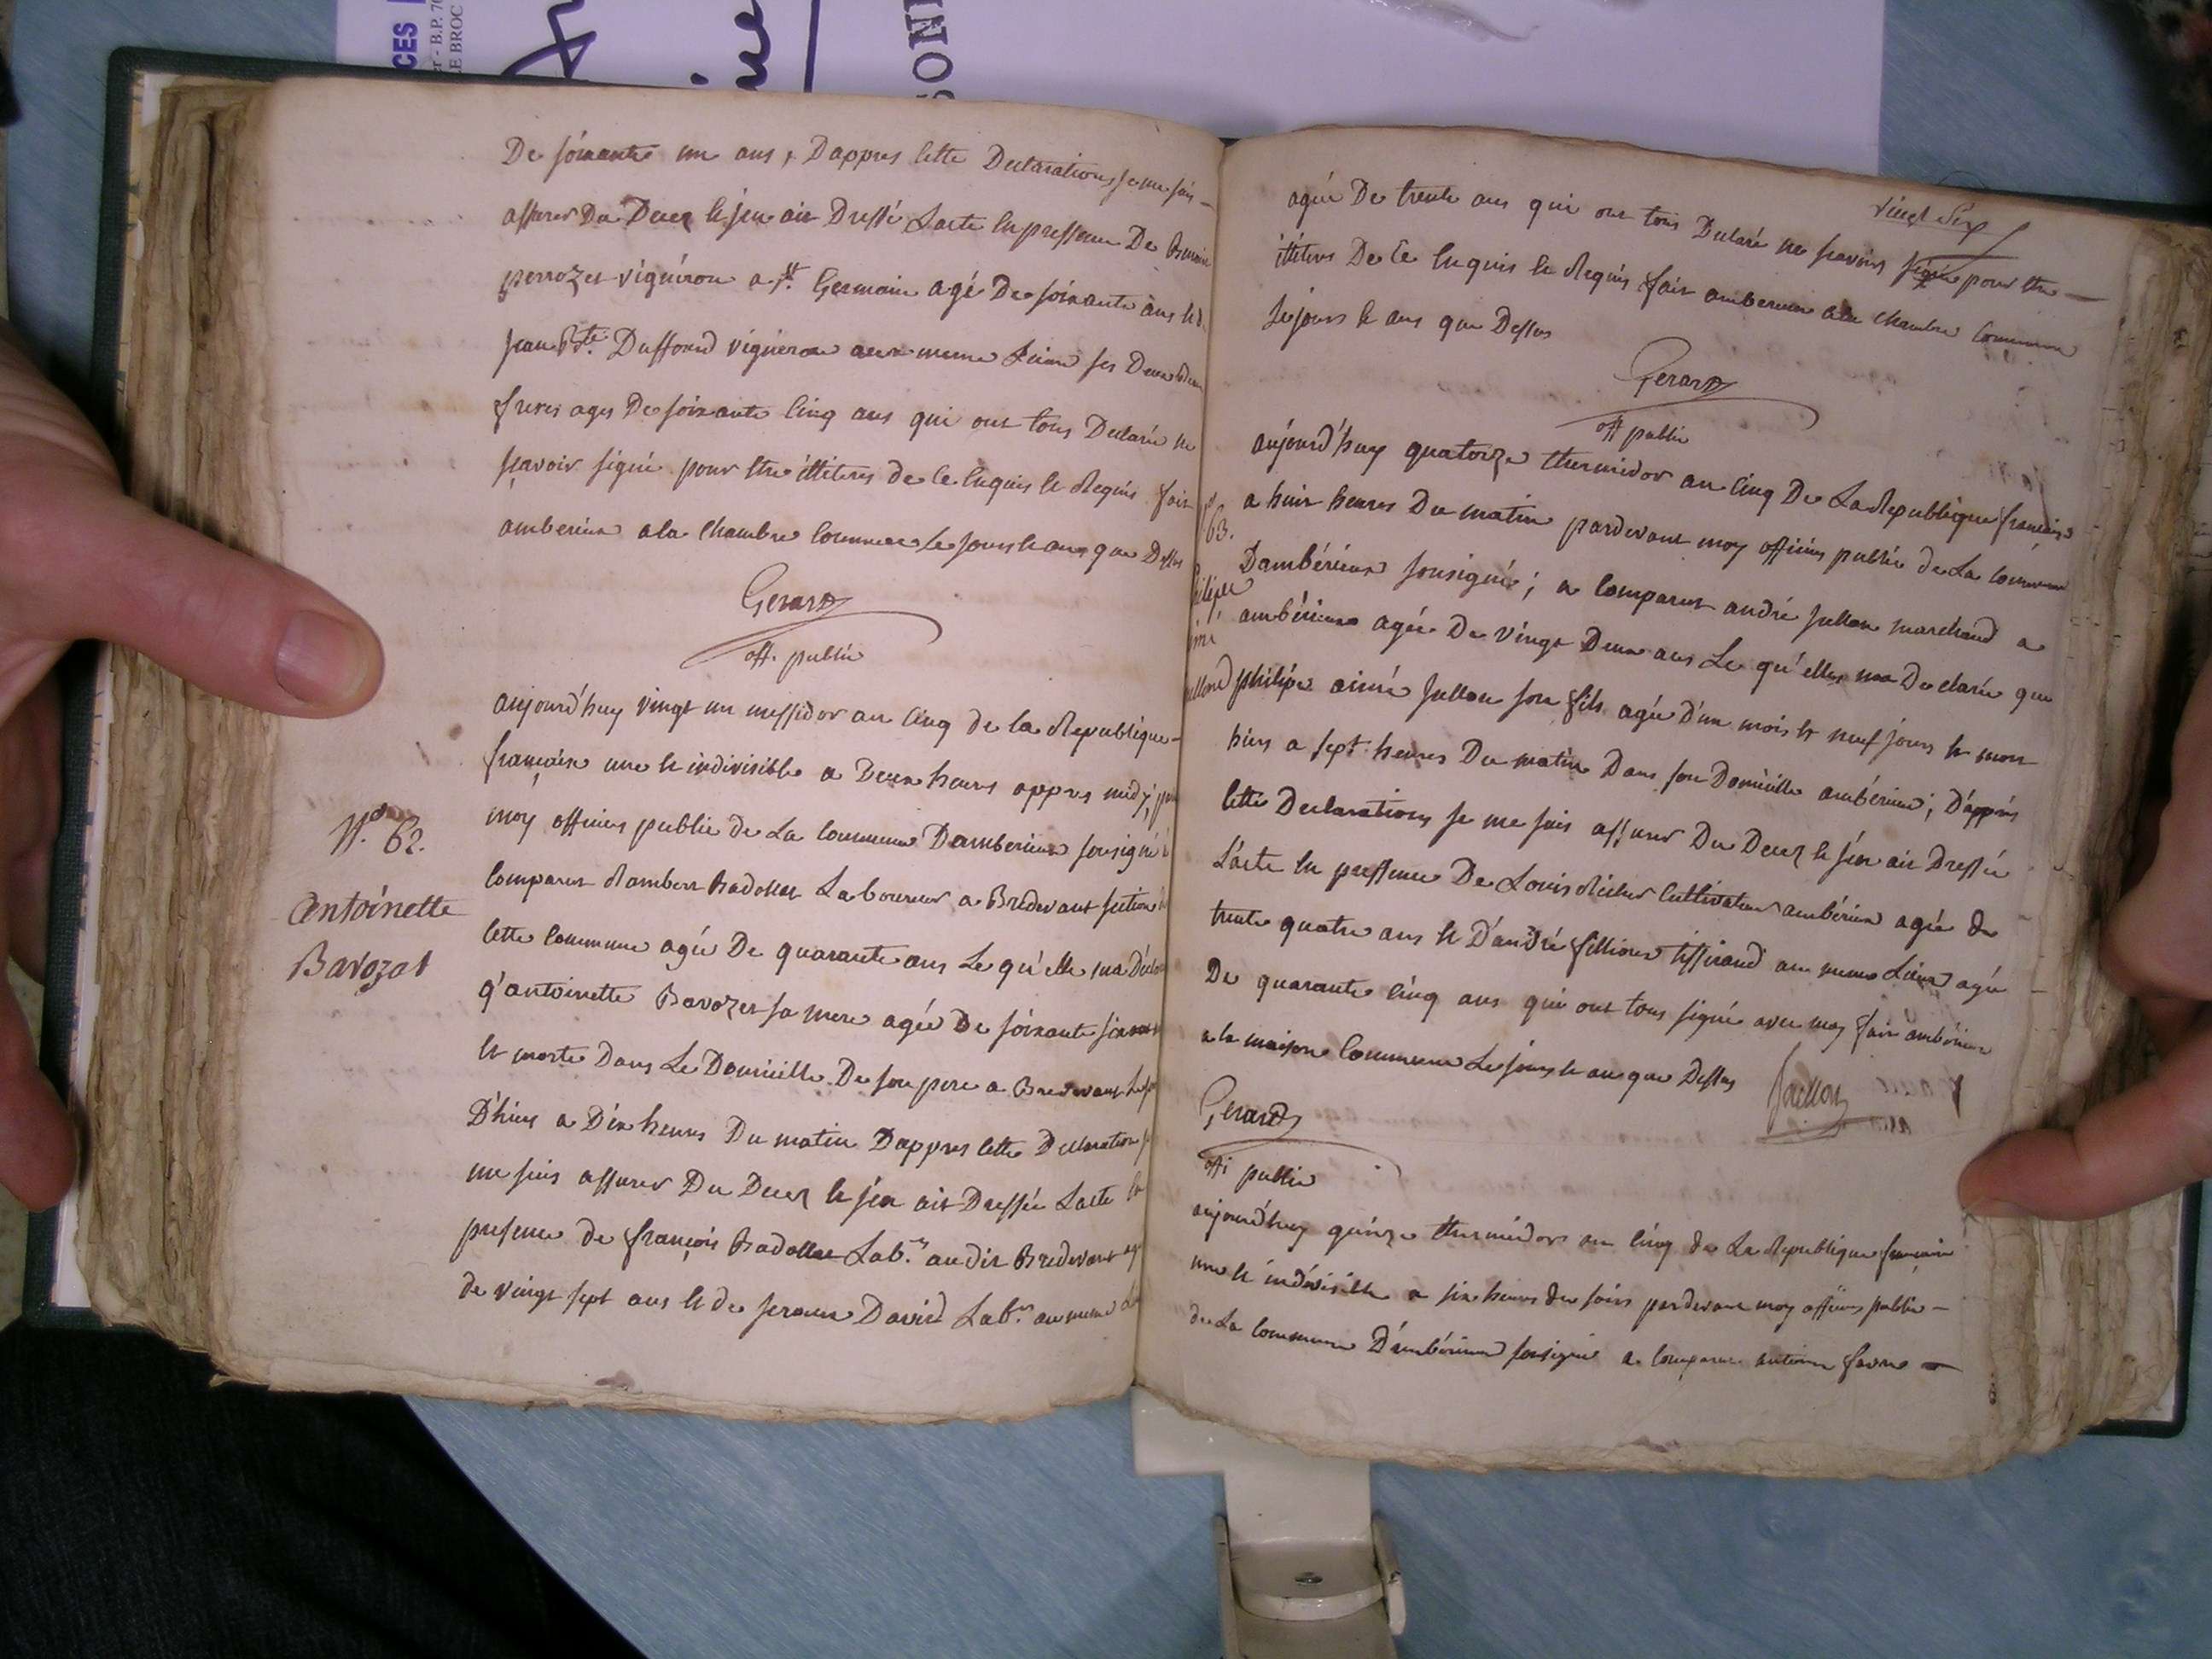 CES
er - B.P. 70
E BROC
SONN
De soixante un ans, Dappres cette Declarations je me suis
assurer Du Decez et jen ait Dressé Lacte en pressence De
perrozet vigniron a St. Germain agé De soixante ans et d.
jean Bte. Duffourd vigneron aux meme Lieux ses Deux
freres ages De soixante cinq ans qui ont tous Declarée ne
sçavoir signé pour etre illiteres de ce enquis et Requis fait
amberieux a la Chambre Commune Le jours et ans que Dessus
Gerard
off. public
aujourd'huy vingt un messidor an cinq de la Republique
françaisse une et indivisible a Deux heures appres midy,
moy officier public de La Commune Damberieux sousigné
N.º 62.
Antoinette
Bavozat
comparut Rambert Badollet Laboureur a Bredevant section
cette commune agée De quarante ans Le qu'elle ma
q'antoinette Bavozet sa mere agée De soixante
et morte Dans Le Domicille De son pere a Bredevant
D'hier a Dix heures Du matin Dappres cette Declaration
me suis assurer Du Decez et j'en ait Dressée Lacte
presence de françois Badollet Lab.rs audit Bredevant
de vingt sept ans et de jerome David Lab.rs au meme
vingt Six
agée De trente ans qui ont tous Declaré ne sçavoir signé pour etre
illiteres De Ce enquis et Requis fait amberieux a la Chambre Commune
Le jours et ans que Dessus
Gerard
off public
aujourd'huy quatorze thermidor an Cinq De La Republique française
63.
a huit heures Du matin pardevant moy officier public de La Commune
Dambérieux sousigné; a comparut andré jullon marchand a
ambérieux agée De vingt Deux ans Le qu'elle ma Declarée que
philipe aimé jullon son fils agée D'un mois et neuf jours et mort
hier a sept heures Du matin Dans son Domicille ambérieux; D'apprés
cette Declarations je me suis assurer Du Decez et j'en ait Dressée
L'acte en pressence De Louis Cultivateur ambérieux agée de
trente quatre ans et D'andré fillion tisserand au meme Lieux agée
De quarante cinq ans qui ont tous signé avec moy fait ambérieux
a la maison Commune Le jours et an que Dessus
Gerard
offi public
aujourd'huy quinze thermidor an cinq de La Republique française
une et indivisible a six heures du soir pardevant moy officier public
de La Commune D'ambérieux sousigné a comparut antoine favre